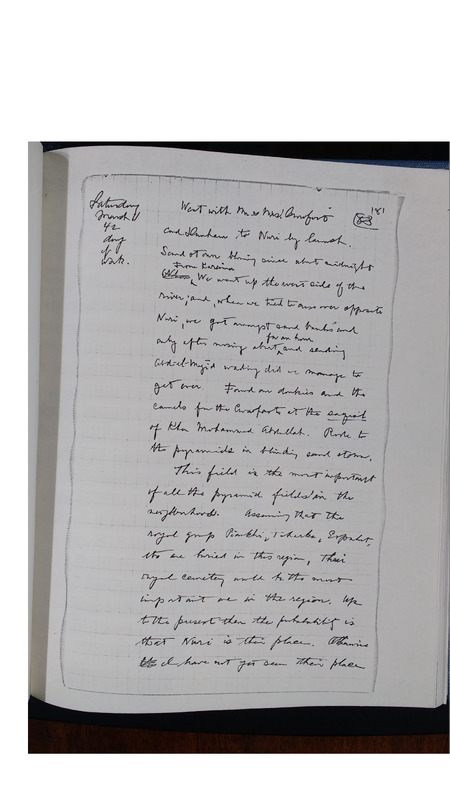 Saturday
March 11
42
day
of
work.
181
83
Went with Mr. & Mrs. Crawford
and Dunham to Nuri by launch.
Sand storm blowing since about midnight
From Kareima
We went up the west side of the
river; and, when we tried to cross over opposite
Nuri, we got amongst sand banks and
for an hour
only after nosing about and sending
Abd-el-Magid wading did we manage to
get over. Found our donkeys and the
camels for the Crawfords at the saqiat
of Khor Mohammed Abdullah. Rode to
the pyramids in blinding sand storm.
This field is the most important
of all the pyramid fields in the
neighborhood. Assuming that the
royal group Piankhi, Taharka, Espalut,
etc are buried in this region, their
royal cemetery would be the most
important one in the region. Up
to the present then the probability is
that Nuri is their place. Otherwise
I have not yet seen their place